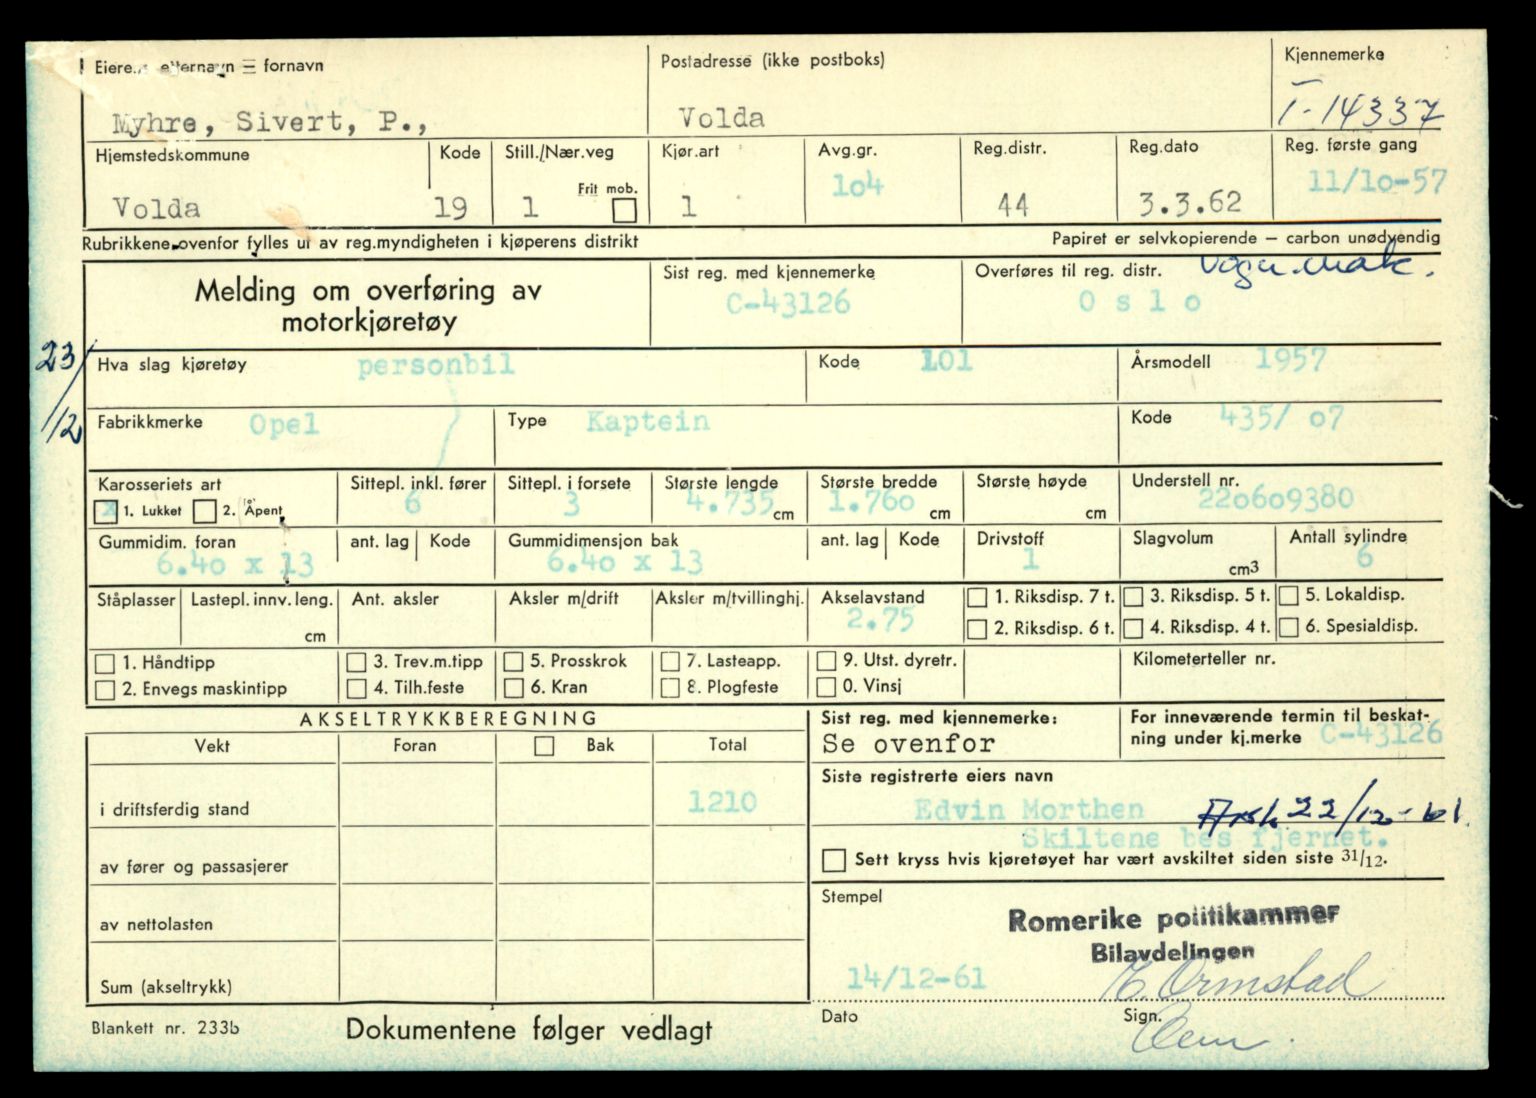 Eierens etternavn — fornavn
Postadresse (ikke postboks)
Kjennemerke
Myhre, Sivert, P.,
Volda
T-14337
Hjemstedskommune
Kode
Still./Nær.veg
Kjør.art
Avg.gr.
Reg.distr.
Reg.dato
Reg. første gang
Frit mob.
Volda
19
1
1
1o4
44
3.3.62
11/1o-57
Rubrikkene ovenfor fylles ut av reg.myndigheten i kjøperens distrikt
Papiret er selvkopierende — carbon unødvendig
Melding om overføring av
motorkjøretøy
Sist reg. med kjennemerke
C-43126
Overføres til reg. distr.
Oslo
23/12
Hva slag kjøretøy personbil
Kode 101
Årsmodell 1957
Fabrikkmerke Opel
Type Kaptein
Kode 435/ o7
Karosseriets art
x 1. Lukket 2. Åpent
Sittepl. inkl. fører
6
Sittepl. i forsete
3
Største lengde
4.735 cm
Største bredde
1.76o cm
Største høyde
cm
Understell nr.
22o6o938o
Gummidim. foran
6.4o x 13
ant. lag
Kode
Gummidimensjon bak
6.4o x 13
ant. lag
Kode
Drivstoff
1
Slagvolum
cm3
Antall sylindre
6
Ståplasser
Lastepl. innv. leng.
cm
Ant. aksler
Aksler m/drift
Aksler m/tvillinghj.
Akselavstand
2.75
1. Riksdisp. 7 t.
3. Riksdisp. 5 t.
5. Lokaldisp.
2. Riksdisp. 6 t.
4. Riksdisp. 4 t.
6. Spesialdisp.
1. Håndtipp
3. Trev.m.tipp
5. Prosskrok
7. Lasteapp.
9. Utst. dyretr.
Kilometerteller nr.
2. Envegs maskintipp
4. Tilh.feste
6. Kran
8. Plogfeste
0. Vinsj
AKSELTRYKKBEREGNING
Sist reg. med kjennemerke:
Se ovenfor
For inneværende termin til beskat-
ning under kj.merke C-43126
Vekt
Foran
Bak
Total
i driftsferdig stand
1210
av fører og passasjerer
av nettolasten
Sum (akseltrykk)
Siste registrerte eiers navn
Edvin Morthen
22/12-61.
Skiltene bes fjernet.
Sett kryss hvis kjøretøyet har vært avskiltet siden siste 31/12.
Stempel
Romerike politikammer
Bilavdelingen
14/12-61
E. Ormstad
Dato
Sign.
Blankett nr. 233b
Dokumentene følger vedlagt